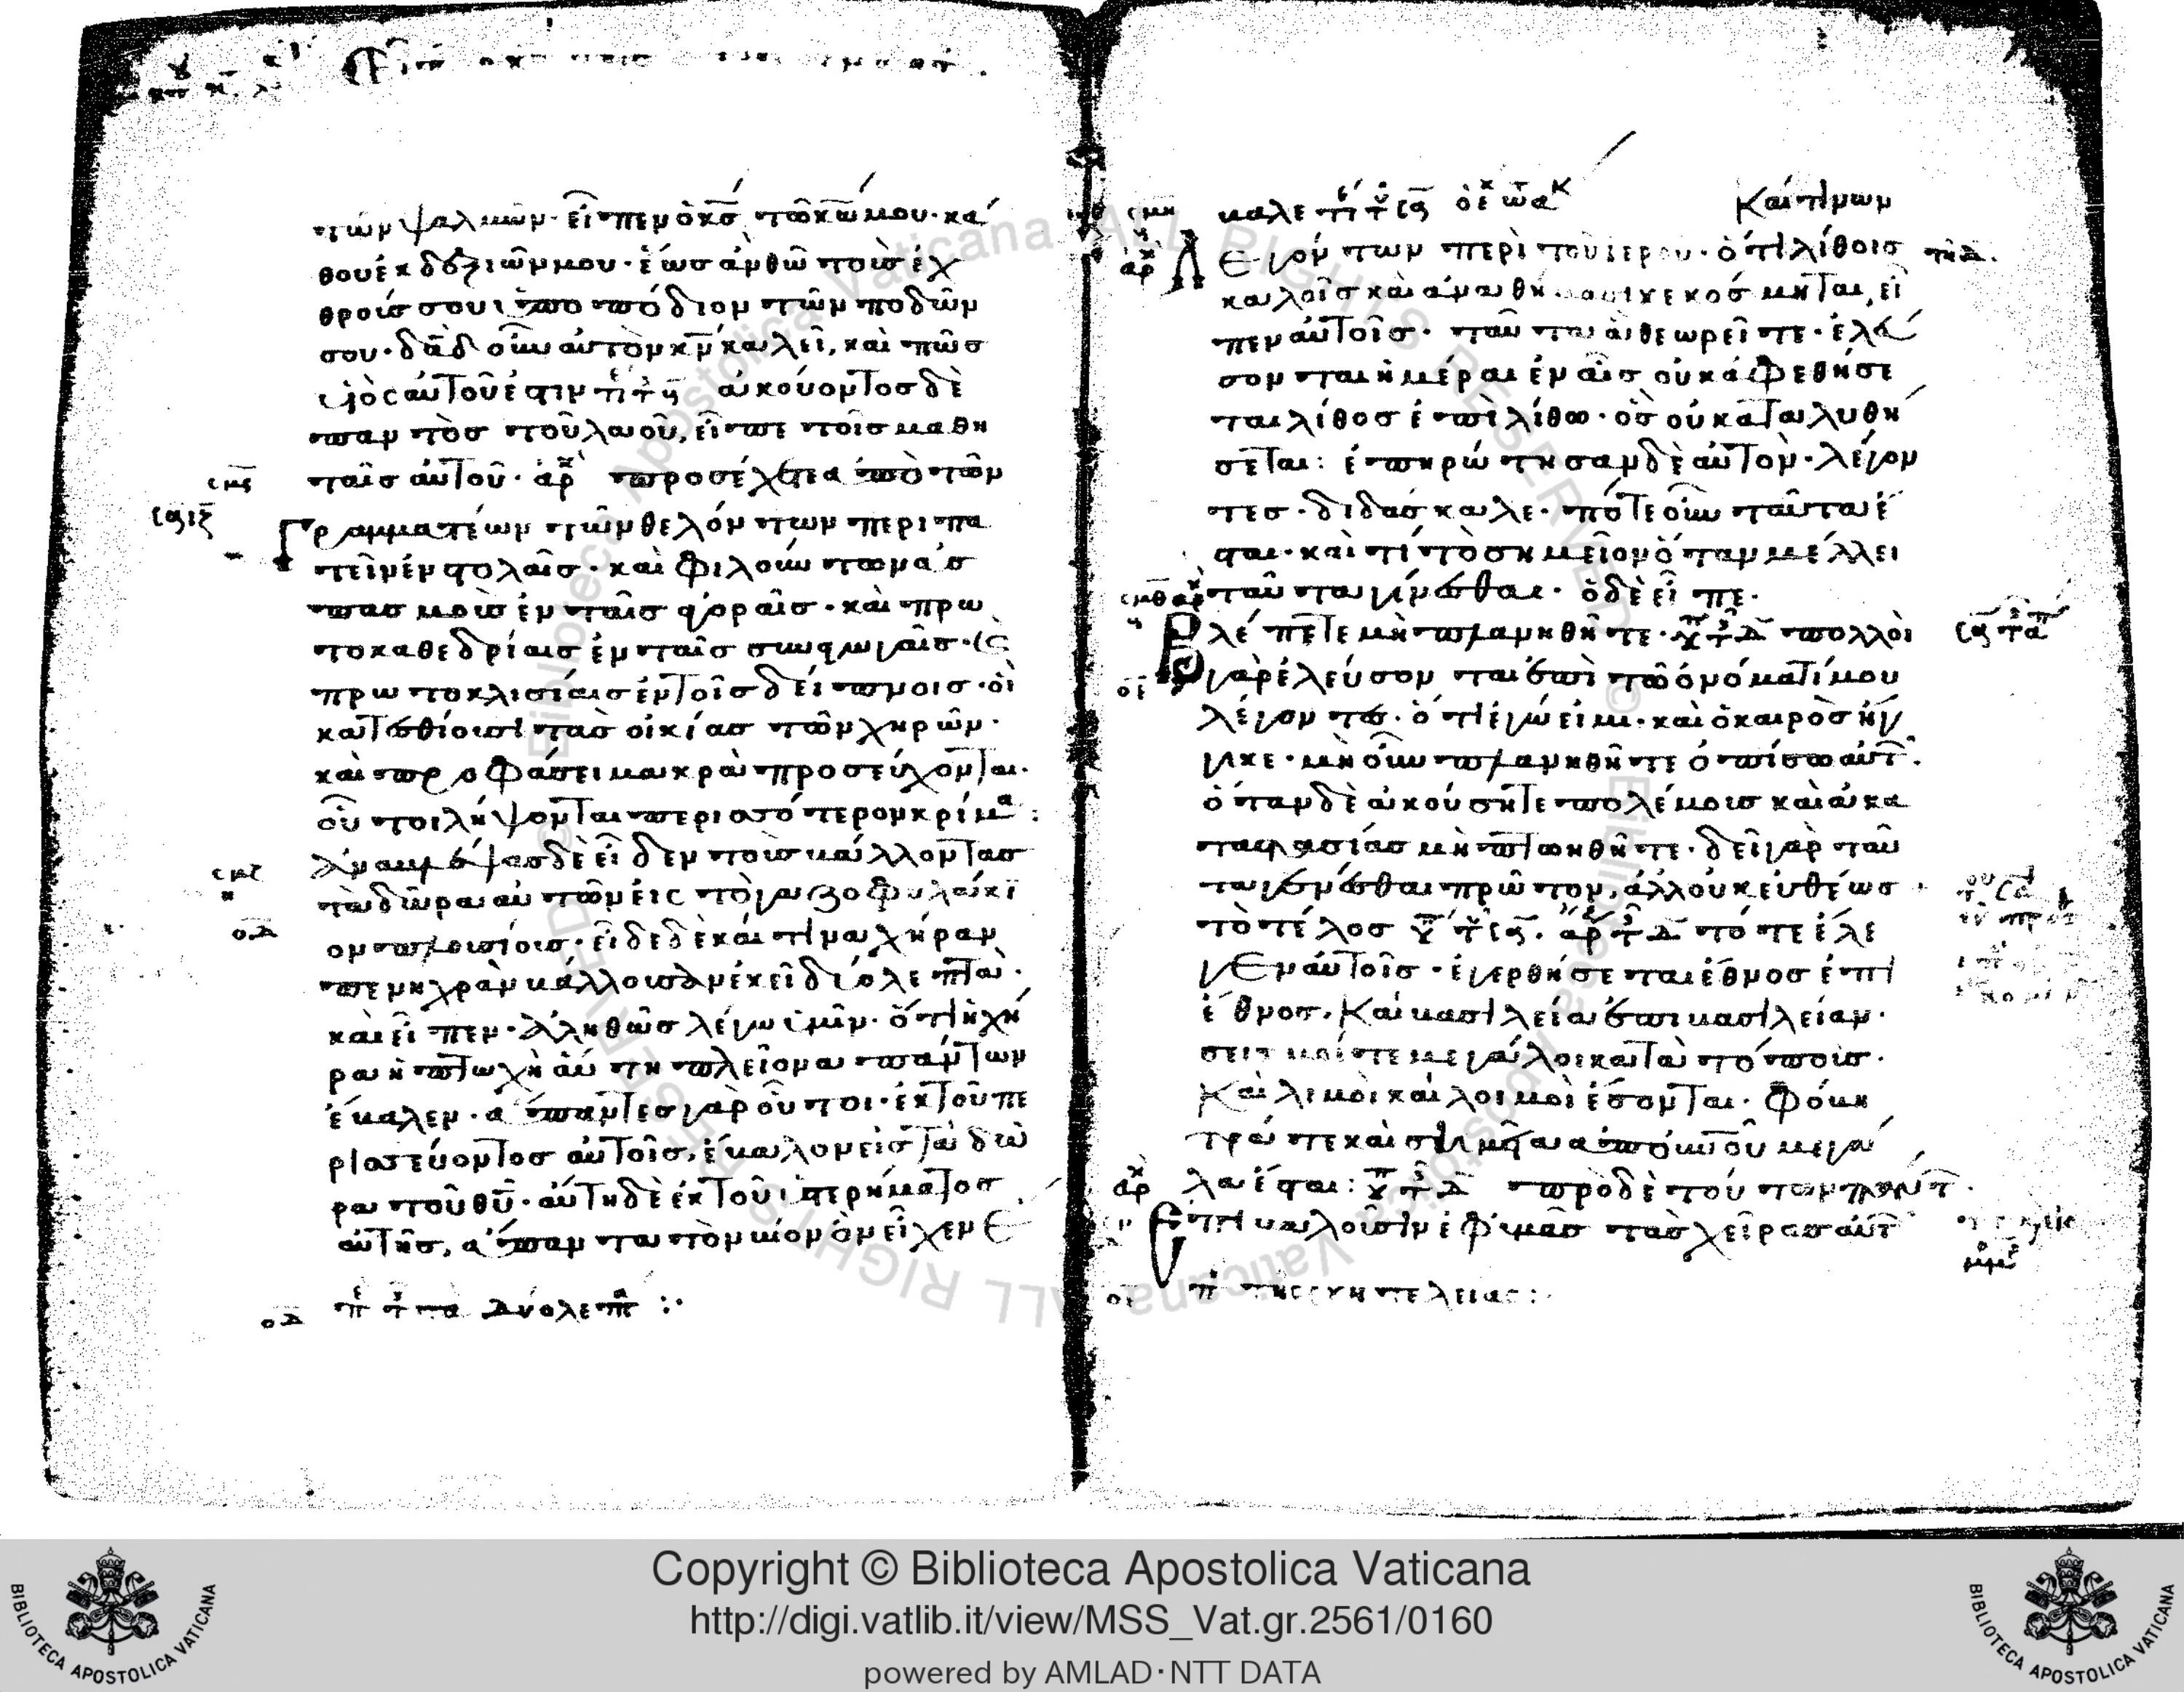 των ψαλμων· εἶπεν ὁ κ̅ς̅ τῶ κ̅ω̅ μου· κά
θου ἐκ δεξιῶν μου· ἕως ἂν θῶ τοὺς ἐχ
θρούς σου ὑποπόδιον τῶν ποδῶν
σου· δ̅α̅δ̅ οὖν αὐτὸν κ̅ν̅ καλεῖ, καὶ πῶς
υἱὸς αὐτοῦ ἐστιν ἀκούοντος δὲ
παντὸς τοῦ λαοῦ, εἶπε τοῖς μαθη
ταῖς αὐτοῦ· ἀρχ προσέχετε ἀπὸ τῶν
γραμματέων τῶν θελόντων περιπα
τεῖν ἐν στολαῖς· καὶ φιλούντων ἀσ
πασμοὺς ἐν ταῖς ἀγοραῖς· καὶ πρω
τοκαθεδρίαις ἐν ταῖς συναγωγαῖς· κὶ
πρωτοκλισίαις ἐν τοῖς δείπνοις· οἳ
κατεσθίουσι τὰς οἰκίας τῶν χηρῶν·
καὶ προφάσει μακρὰ προσεύχονται·
οὗτοι λήψονται περισσότερον κρίμα:
ἀναβλέψας δὲ εἶδεν τοὺς βάλλοντας
τὰ δῶρα αὐτῶν εἰς τὸ γαζοφυλάκι
ον πλουσίους· εἶδε δὲ καί τινα χήραν
πενιχρὰν βάλλουσαν ἐκεῖ δύο λεπτά·
καὶ εἶπεν· ἀληθῶς λέγω ὑμῖν· ὅτι ἡ χή
ρα ἡ πτωχὴ αὕτη πλεῖονα πάντων
ἔβαλεν· ἅπαντες γὰρ οὗτοι· ἐκ τοῦ πε
ρισσεύοντος αὐτοῖς, ἔβαλον εἰς τὰ δῶ
ρα τοῦ θ̅υ̅· αὕτη δὲ ἐκ τοῦ ὑστερήματος
αὐτῆς, ἅπαντα τὸν βίον ὃν εἶχεν ἔ
βαλε Καί τινων
λεγόντων περὶ τοῦ ἱεροῦ· ὅτι λίθοις
καλοῖς καὶ ἀναθή κεκόσμηται, εἶ
πεν αὐτοῖς· ταῦτα ἃ θεωρεῖτε· ἐλεύ
σονται ἡμέραι ἐν αἷς οὐκ ἀφεθήσε
ται λίθος ἐπὶ λίθω· ὃς οὐ καταλυθή
σεται: ἐπηρώτησαν δὲ αὐτὸν· λέγον
τες· διδάσκαλε· πότε οὖν ταῦτα ἔ
σται· καὶ τί τὸ σημεῖον ὅταν μέλλει
ταῦτα γίνεσθαι· ὁ δὲ εἶπε·
Βλέπετε μὴ πλανηθῆτε· πολλοὶ
γὰρ ἐλεύσονται ἐπὶ τῶ ὀνόματί μου
λέγοντες· ὅτι ἐγώ εἰμι· καὶ ὁ καιρὸς ἤγ
γικε· μὴ οὖν πλανηθῆτε ὀπίσω αὐτ·
ὅταν δὲ ἀκούσητε πολέμους καὶ ἀκα
ταστασίας μὴ πτωηθῆτε· δεῖ γὰρ ταῦ
τα γενέσθαι πρῶτον, ἀλλ οὐκ εὐθέως
τὸ τέλος τότε ἔλε
γεν αὐτοῖς· ἐγερθήσεται ἔθνος ἐπὶ
ἔθνος, καὶ βασιλεία ἐπὶ βασιλείαν·
σεισμοί τε μεγάλοι κατὰ τόπους·
Καὶ λιμοὶ καὶ λοιμοὶ ἔσονται· φόβη
τρά τε καὶ σημεῖα ἀπ οὐ̅ν̅οῦ μεγά
λα ἔσται: πρὸ δὲ τούτων πάντ·
ἐπιβαλοῦσιν ἐφ ὑμᾶς τὰς χεῖρας αὐτ
τῆς συντελείας:
Copyright © Biblioteca Apostolica Vaticana
http://digi.vatlib.it/view/MSS_Vat.gr.2561/0160
powered by AMLAD·NTT DATA
BIBLIOTECA APOSTOLICA VATICANA
BIBLIOTECA APOSTOLICA VATICANA